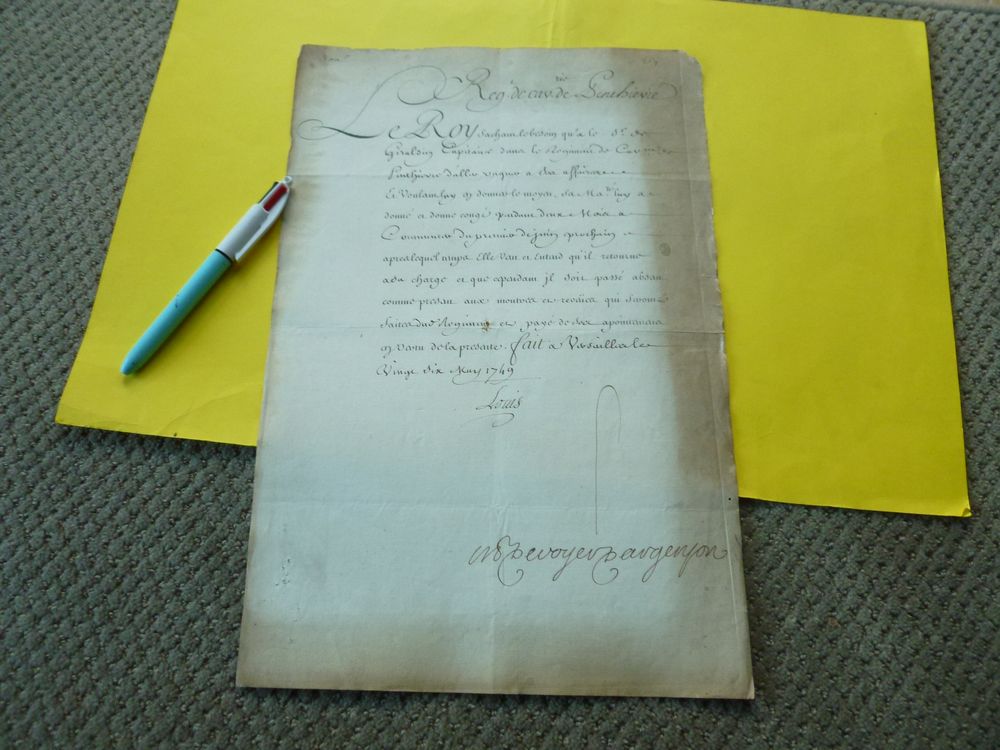 Reg.t de cav.rie de Penthievre
Le Roy sachant le besoin qu'a le S.r de
Giraldin Capitaine dans le Regiment de Cav.rie de
Penthievre d'aller vaquer a ses affaires
Et Voulant luy en donner le moyen, Sa Ma.té luy a
donné et donne congé pendant deux Mois a
Commencer du premier de juin prochain
apres lequel temps Elle Veut et Entend qu'il retourne
a sa charge et que cependant jl soit passé absent
comme present aux montres et reveües qui seront
faites dud. Regiment et payé de ses apointemens
en vertu de la presente. fait a Versailles le
Vingt dix May 1749
Louis
M De voyer D'argenson